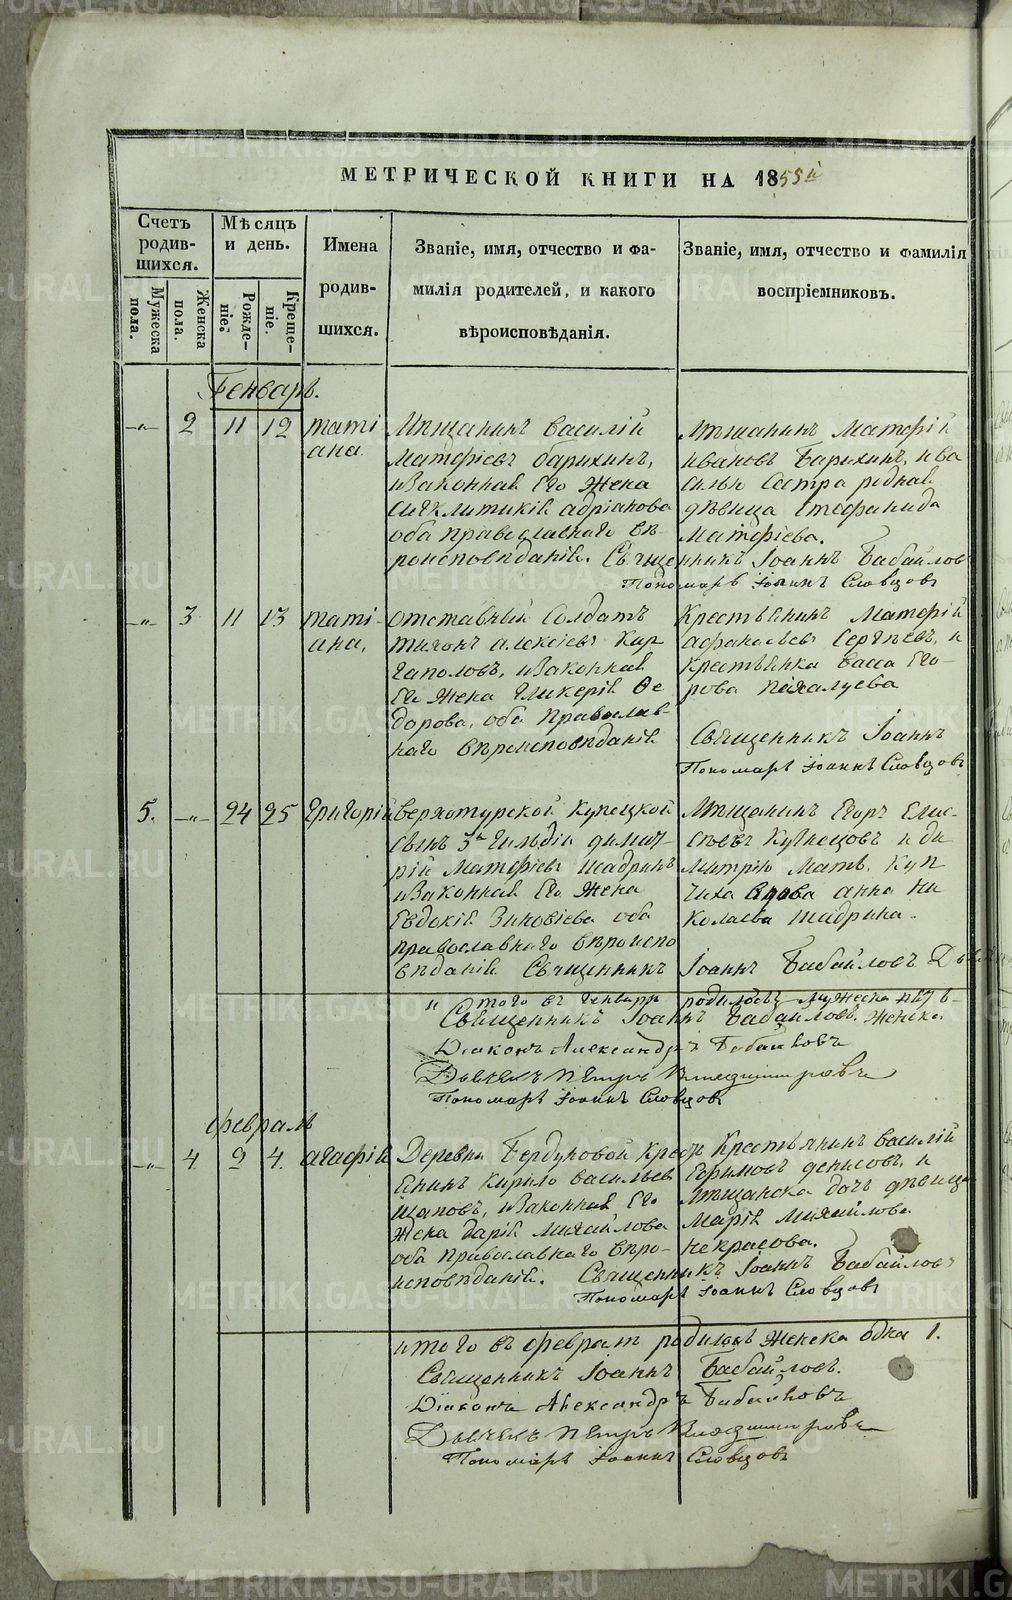 МЕТРИЧЕСКОЙ КНИГИ НА 1855й
Счетъ
родив-
шихся.
Мѣсяцъ
и день.
Имена
родив-
шихся.
Званіе, имя, отчество и фа-
милія родителей, и какого
вѣроисповѣданія.
Званіе, имя, отчество и фамилія
воспріемниковъ.
Мужеска
пола.
Женска
пола.
Рожде-
ніе.
Креще-
ніе.
Генварь.
-"- 2 11 12 тати
ана
Мѣщанинъ василій
Матфіевъ барихинъ,
изаконная Его Жена
Сигклитикія адріанова
оба православнаго вѣ-
роисповѣданія.
Мѣщанинъ Матфій
ивановъ Барихинъ, и ва
силью Сестра родная
дѣвица Стефанида
Матфіева.
Священникъ Іоаннъ Бабайлов
Пономарь Іоаннъ Словцовъ
-"- 3 11 13 тати-
ана,
отставный Солдатъ
тихонъ алексіевъ Кар
гаполовъ, изаконная
Его Жена Гликерія Ѳе
дорова, оба православ-
наго вѣроисповѣданія
Крестьянинъ Матфій
афанасьевъ Сергѣевъ, и
крестьянка васса Его-
рова пѣгалуева
Священникъ Іоаннъ
Пономарь Іоаннъ Словцовъ
5. -"- 24 25 Григорій
верхотурской Купецкой
сынъ 3й гильдіи димит
рій Матфіевъ шадринъ
изаконная Его Жена
Евдокія Зиновіева оба
православнаго вѣроиспо
вѣданія
Мѣщанинъ Егоръ Елис-
ѣевъ Кузнецовъ и ди
митрію Мать, Куп
чиха вдова анна ни
колаева шадрина.
Священникъ Іоаннъ Бабайловъ
Итого въ Генварѣ родилось мужеска
Священникъ Іоаннъ Бабайловъ. женска
Діаконъ Александръ Бабайловъ
Дьячекъ Петръ
Пономарь Іоаннъ Словцовъ
февраль
-"- 4. 2 4. агафія
Деревни Бердуковой Кресть
янинъ Кирило васильевъ
щаповъ, изаконная Его
Жена дарія михайлова
оба православнаго вѣро-
исповѣданія.
Крестьянинъ василій
Ефимовъ денисовъ, и
мѣщанска дочь дѣвица
Марія Михайлова
некрасова.
Священникъ Іоаннъ Бабайловъ
Пономарь Іоаннъ Словцовъ
итого въ февралѣ родилось женска одна 1.
Священникъ Іоаннъ Бабайловъ.
Діаконъ Александръ Бабайловъ
Дьячекъ Петръ
Пономарь Іоаннъ Словцовъ
METRIKI.GASO-URAL.RU